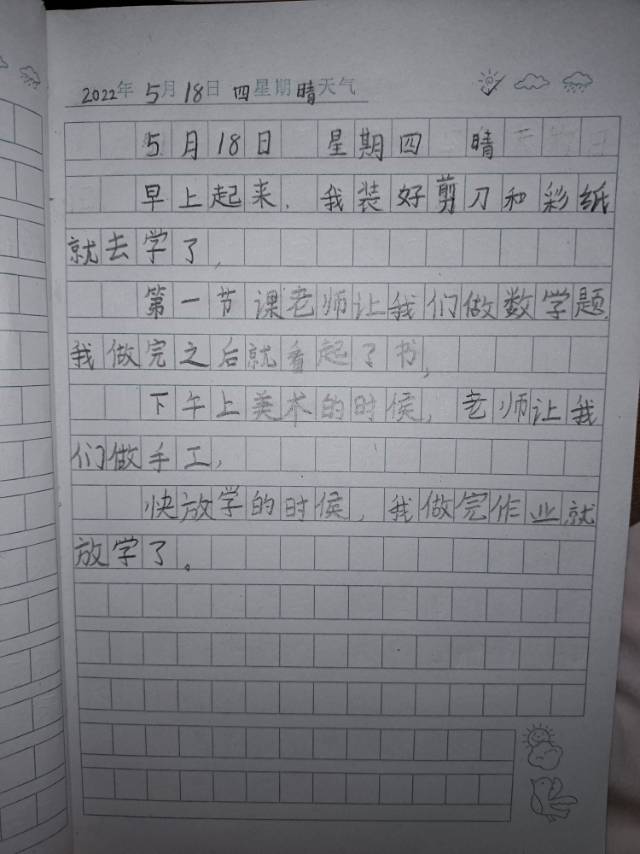 2022年 5月 18日 四星期 晴天气
5月18日 星期四 晴
早上起来，我装好剪刀和彩纸
就去学了，
第一节课老师让我们做数学题
我做完之后就看起了书，
下午上美术的时候，老师让我
们做手工，
快放学的时候，我做完作业就
放学了。